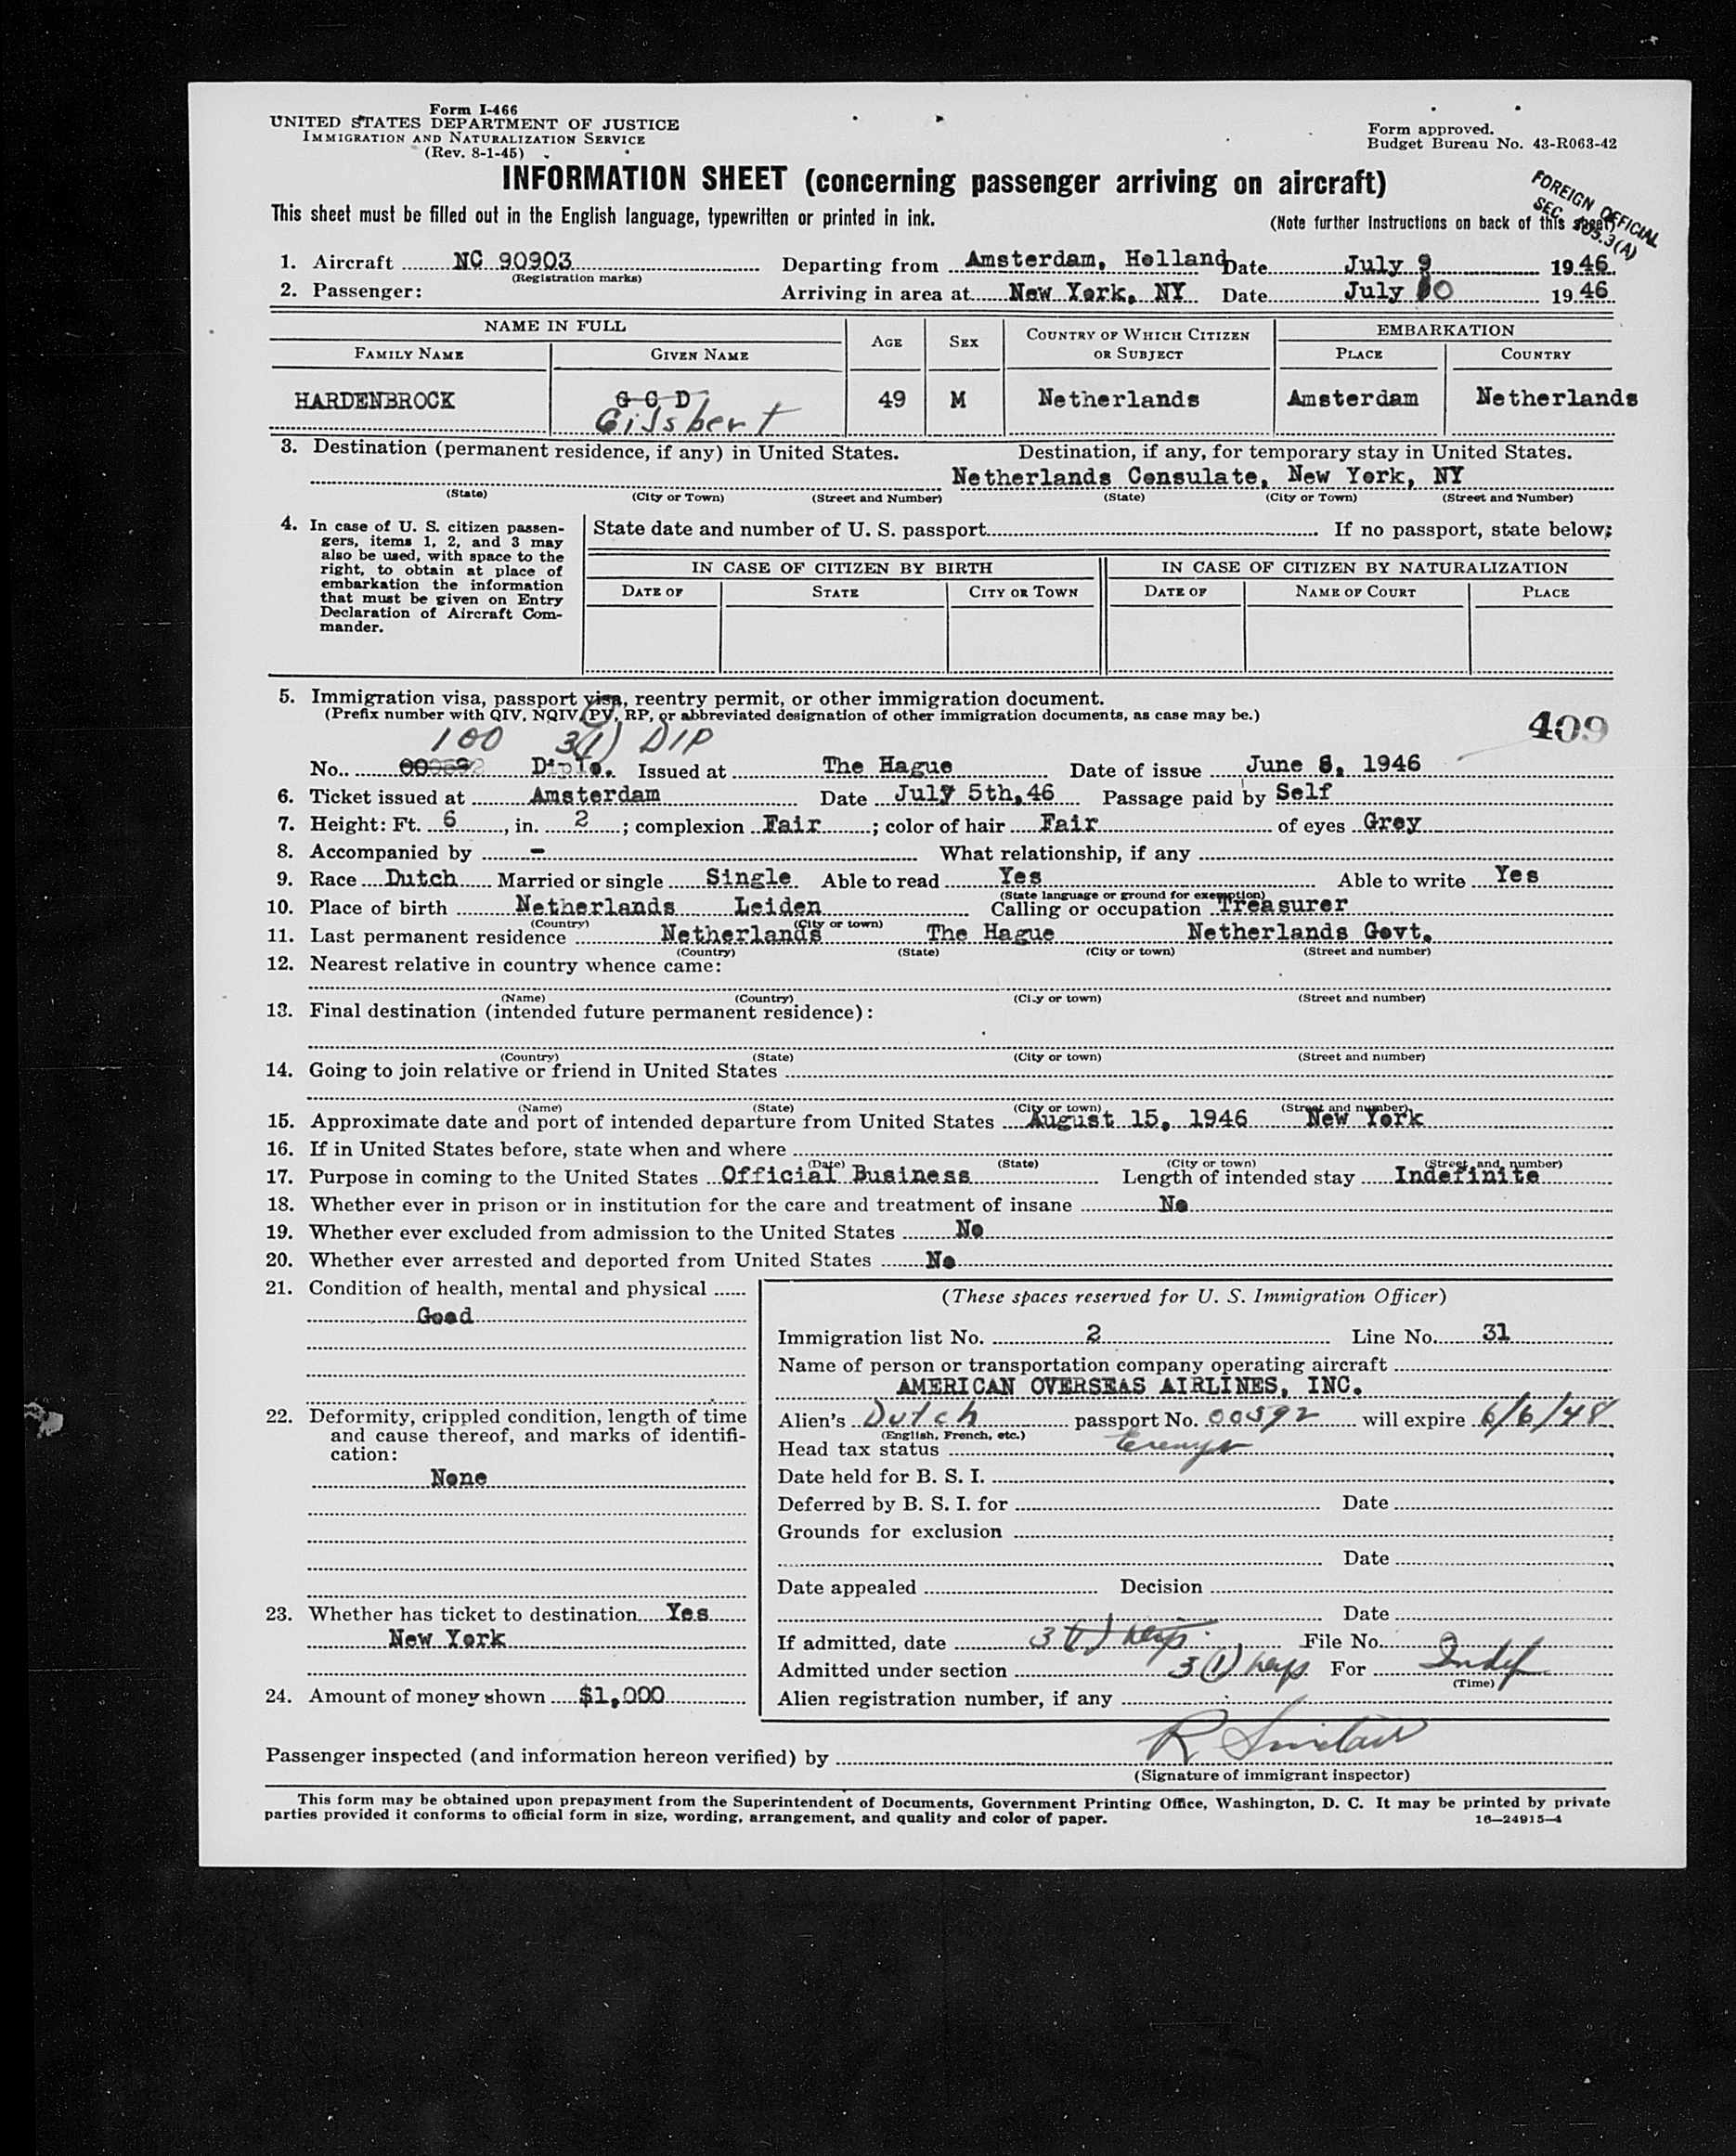 Form I-466
UNITED STATES DEPARTMENT OF JUSTICE
IMMIGRATION AND NATURALIZATION SERVICE
(Rev. 8-1-45)
Form approved.
Budget Bureau No. 43-R063-42
INFORMATION SHEET (concerning passenger arriving on aircraft)
FOREIGN OFFICIAL
SEC. 3(A)
This sheet must be filled out in the English language, typewritten or printed in ink.
(Note further instructions on back of this sheet)
1. Aircraft NC 90903 Departing from Amsterdam, Holland Date July 9 1946
(Registration marks)
2. Passenger: Arriving in area at New York, NY Date July 10 1946
NAME IN FULL AGE SEX COUNTRY OF WHICH CITIZEN OR SUBJECT EMBARKATION
FAMILY NAME GIVEN NAME PLACE COUNTRY
HARDENBROCK G C D 49 M Netherlands Amsterdam Netherlands
Gijsbert
3. Destination (permanent residence, if any) in United States. Destination, if any, for temporary stay in United States.
Netherlands Consulate, New York, NY
(State) (City or Town) (Street and Number) (State) (City or Town) (Street and Number)
4. In case of U. S. citizen passen-
gers, items 1, 2, and 3 may
also be used, with space to the
right, to obtain at place of
embarkation the information
that must be given on Entry
Declaration of Aircraft Com-
mander.
State date and number of U. S. passport If no passport, state below:
IN CASE OF CITIZEN BY BIRTH IN CASE OF CITIZEN BY NATURALIZATION
DATE OF STATE CITY OR TOWN DATE OF NAME OF COURT PLACE
5. Immigration visa, passport visa, reentry permit, or other immigration document.
(Prefix number with QIV, NQIV, PV, RP, or abbreviated designation of other immigration documents, as case may be.)
409
100 3(1) DIP
No. 00592 Diplo. Issued at The Hague Date of issue June 8, 1946
6. Ticket issued at Amsterdam Date July 5th,46 Passage paid by Self
7. Height: Ft. 6, in. 2; complexion Fair; color of hair Fair of eyes Grey
8. Accompanied by - What relationship, if any
9. Race Dutch Married or single Single Able to read Yes Able to write Yes
(State language or ground for exemption)
10. Place of birth Netherlands Leiden Calling or occupation Treasurer
(Country) (City or town)
11. Last permanent residence Netherlands The Hague Netherlands Govt.
(Country) (State) (City or town) (Street and number)
12. Nearest relative in country whence came:
(Name) (Country) (City or town) (Street and number)
13. Final destination (intended future permanent residence):
(Country) (State) (City or town) (Street and number)
14. Going to join relative or friend in United States
(Name) (State) (City or town) (Street and number)
15. Approximate date and port of intended departure from United States August 15, 1946 New York
16. If in United States before, state when and where
(Date) (State) (City or town) (Street and number)
17. Purpose in coming to the United States Official Business Length of intended stay Indefinite
18. Whether ever in prison or in institution for the care and treatment of insane No
19. Whether ever excluded from admission to the United States No
20. Whether ever arrested and deported from United States No
21. Condition of health, mental and physical
Good
22. Deformity, crippled condition, length of time
and cause thereof, and marks of identifi-
cation:
None
23. Whether has ticket to destination Yes
New York
24. Amount of money shown $1,000
(These spaces reserved for U. S. Immigration Officer)
Immigration list No. 2 Line No. 31
Name of person or transportation company operating aircraft
AMERICAN OVERSEAS AIRLINES, INC.
Alien's Dutch passport No. 00592 will expire 6/6/48
(English, French, etc.)
Head tax status
Date held for B. S. I.
Deferred by B. S. I. for Date
Grounds for exclusion
Date
Date appealed Decision
Date
If admitted, date 3(1) File No.
Admitted under section 3(1) For Indef
(Time)
Alien registration number, if any
Passenger inspected (and information hereon verified) by R Sinclair
(Signature of immigrant inspector)
This form may be obtained upon prepayment from the Superintendent of Documents, Government Printing Office, Washington, D. C. It may be printed by private
parties provided it conforms to official form in size, wording, arrangement, and quality and color of paper.
16—24915-4